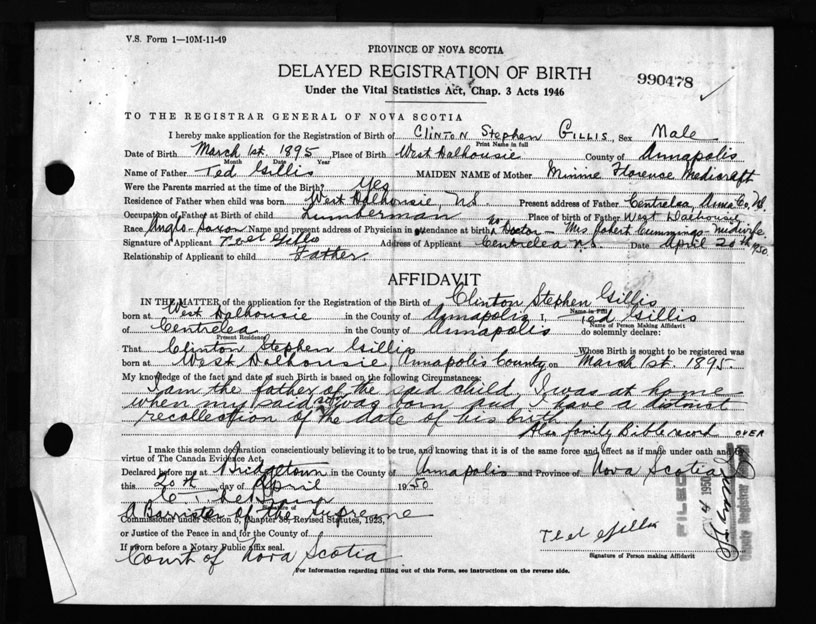 V.S. Form 1—10M-11-49
PROVINCE OF NOVA SCOTIA
DELAYED REGISTRATION OF BIRTH
990478
Under the Vital Statistics Act, Chap. 3 Acts 1946
TO THE REGISTRAR GENERAL OF NOVA SCOTIA
I hereby make application for the Registration of Birth of CLINTON STEPHEN GILLIS, Sex Male
Print Name in full
Date of Birth March 1st. 1895, Place of Birth West Dalhousie County of Annapolis
Month Date Year
Name of Father Ted Gillis MAIDEN NAME of Mother Minnie Florence Medicraft
Were the Parents married at the time of the Birth? Yes
Residence of Father when child was born West Dalhousie, N.S. Present address of Father Centrelea, Anna. Co., N.S.
Occupation of Father at Birth of child Lumberman Place of birth of Father West Dalhousie
Race Anglo-Saxon Name and present address of Physician in attendance at birth no Doctor - Mrs Robert Cummings - midwife
Signature of Applicant Ted Gillis Address of Applicant Centrelea N.S. Date April 20th 1950.
Relationship of Applicant to child Father
AFFIDAVIT
IN THE MATTER of the application for the Registration of the Birth of Clinton Stephen Gillis
Name in Full
born at West Dalhousie in the County of Annapolis I, Ted Gillis
Name of Person Making Affidavit
of Centrelea in the County of Annapolis do solemnly declare:
Present Residence
That Clinton Stephen Gillis Whose Birth is sought to be registered was
born at West Dalhousie, Annapolis County on March 1st. 1895.
My knowledge of the fact and date of such Birth is based on the following Circumstances:
I am the father of the said child, I was at home
when my said son was born and I have a distinct
recollection of the date of his birth
Also family Bible record OVER
I make this solemn declaration conscientiously believing it to be true, and knowing that it is of the same force and effect as if made under oath and by
virtue of The Canada Evidence Act.
Declared before me at Bridgetown in the County of Annapolis and Province of Nova Scotia
this 20th day of April 1950
A Barrister of the Supreme
Commissioner under Section 5, Chapter 38, Revised Statutes, 1923,
or Justice of the Peace in and for the County of
If sworn before a Notary Public affix seal.
Court of Nova Scotia
Ted Gillis
Signature of Person making Affidavit
FILED
1950
For Information regarding filling out of this Form, see instructions on the reverse side.